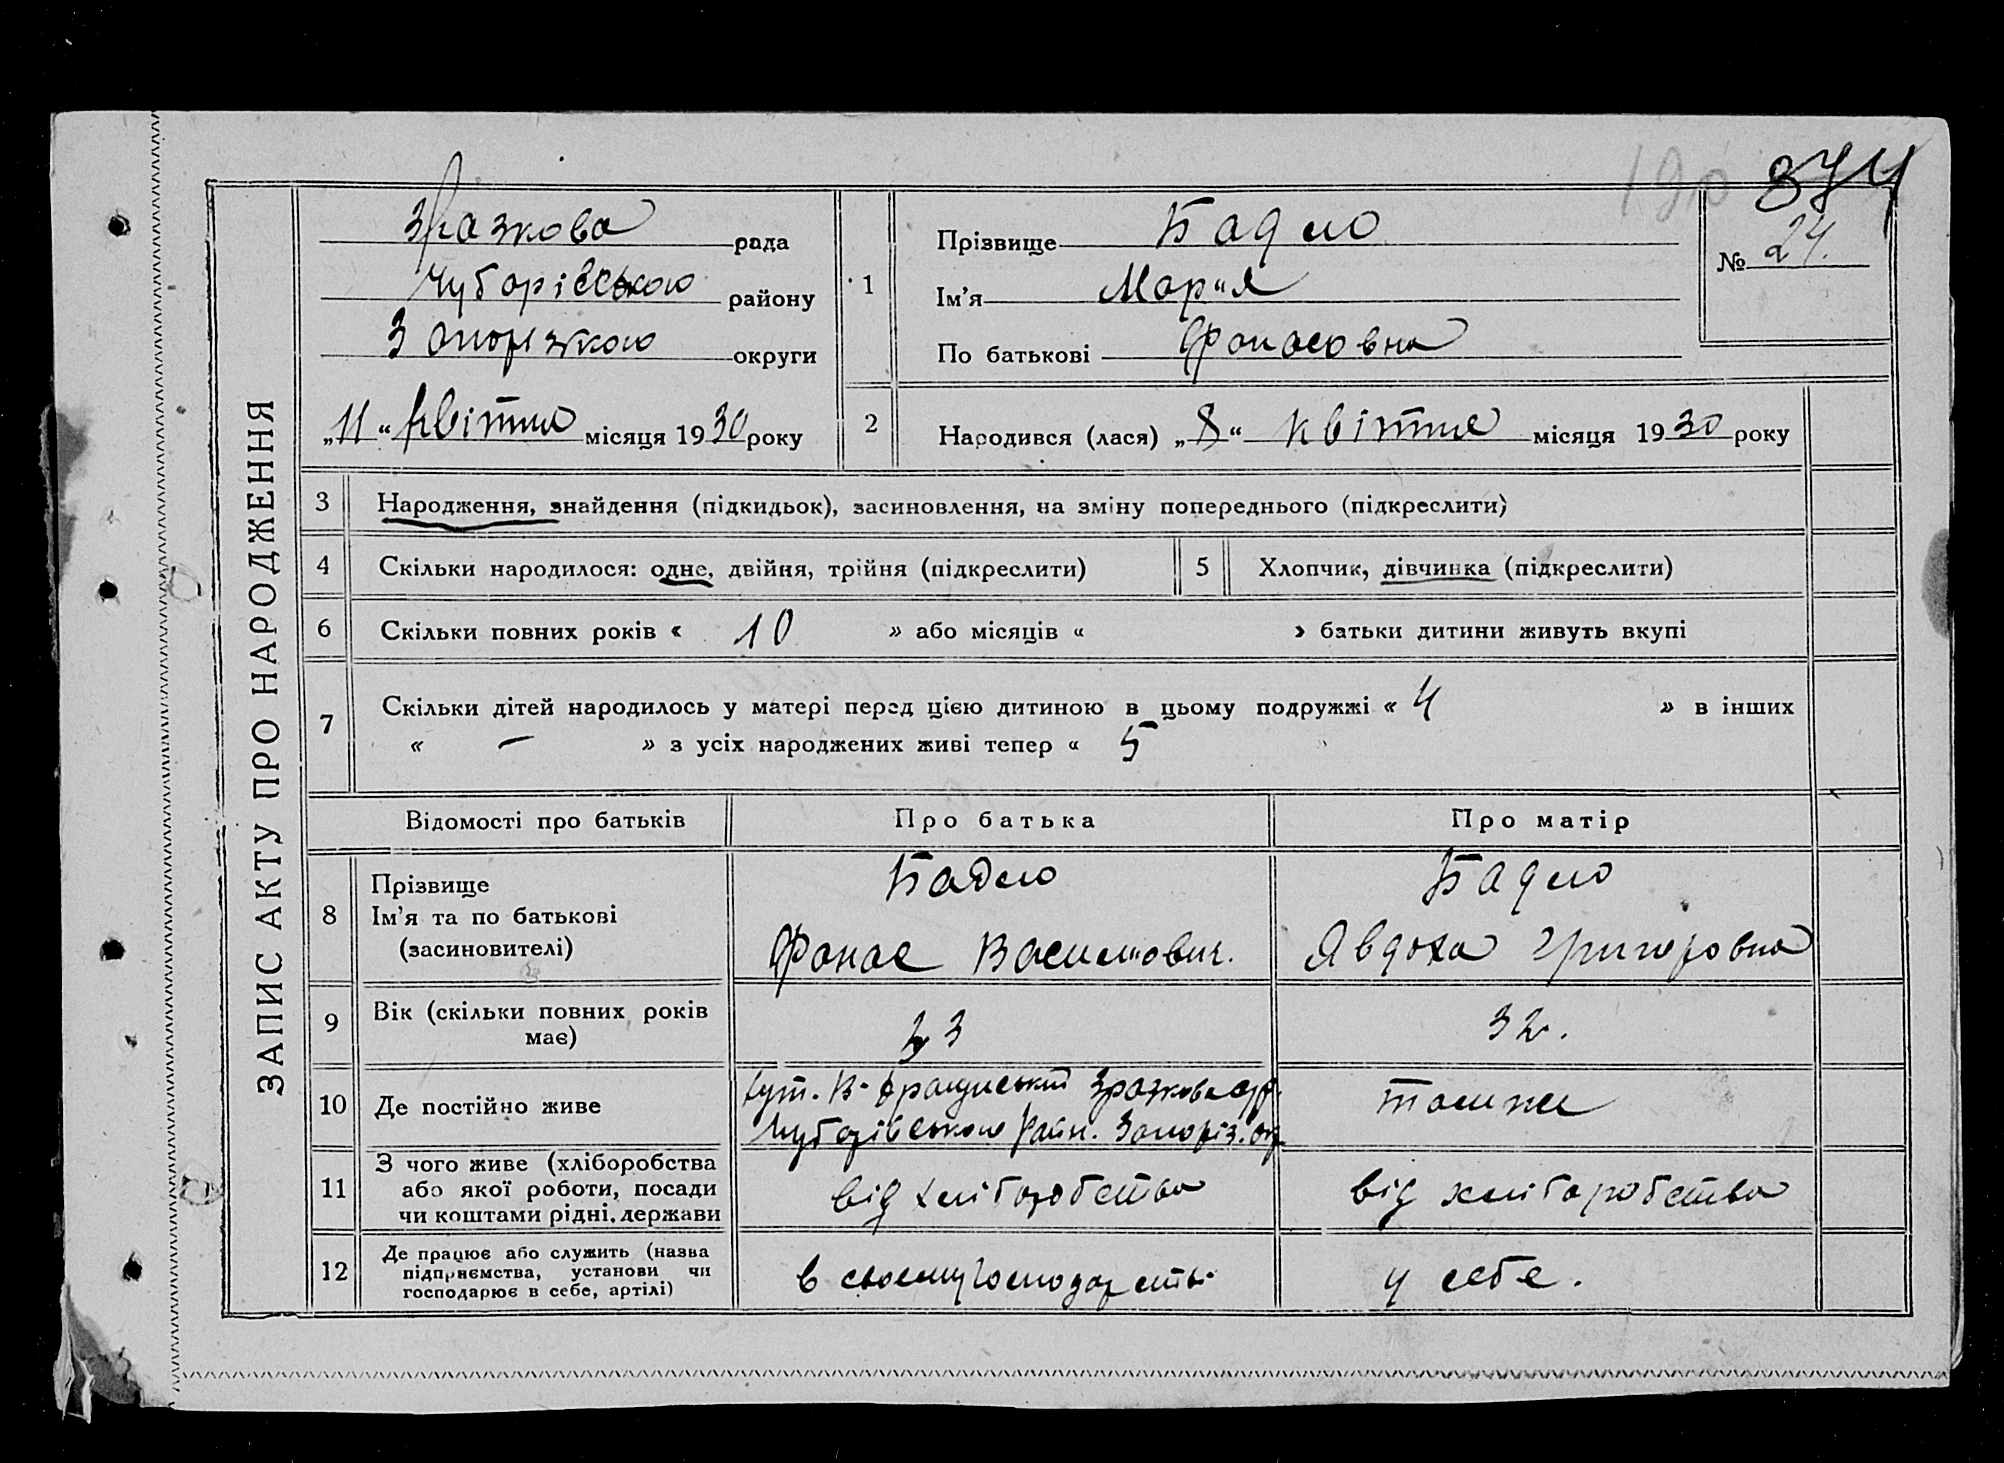 190 374
ЗАПИС АКТУ ПРО НАРОДЖЕННЯ
Зразкова рада
Чубарівського району
Запоризкого округи
„11“ квітня місяця 1930 року
1
Прізвище Бадло
Ім'я Мария
По батькові Фанасовна
№ 24.
2
Народився (лася) „8“ квітня місяця 1930 року
3 Народження, знайдення (підкидьок), засиновлення, на зміну попереднього (підкреслити)
4 Скільки народилося: одне, двійня, трійня (підкреслити)
5 Хлопчик, дівчинка (підкреслити)
6 Скільки повних років « 10 » або місяців « » батьки дитини живуть вкупі
7 Скільки дітей народилось у матері перед цією дитиною в цьому подружжі « 4 » в інших
« — » з усіх народжених живі тепер « 5
Відомості про батьків Про батька Про матір
8 Прізвище
Ім'я та по батькові
(засиновителі)
Бадло
Фанас Василович.
Бадло
Явдоха Григоровна
9 Вік (скільки повних років
має)
33
32.
10 Де постійно живе
Хут. В- Зразкова
Чубарівського Райн. Запоріз. окр
також
11 З чого живе (хліборобства
або якої роботи, посади
чи коштами рідні, держави
від хліборобства
від хліборобства
12 Де працює або служить (назва
підприємства, установи чи
господарює в себе, артілі)
в своему господарстві
у себе.